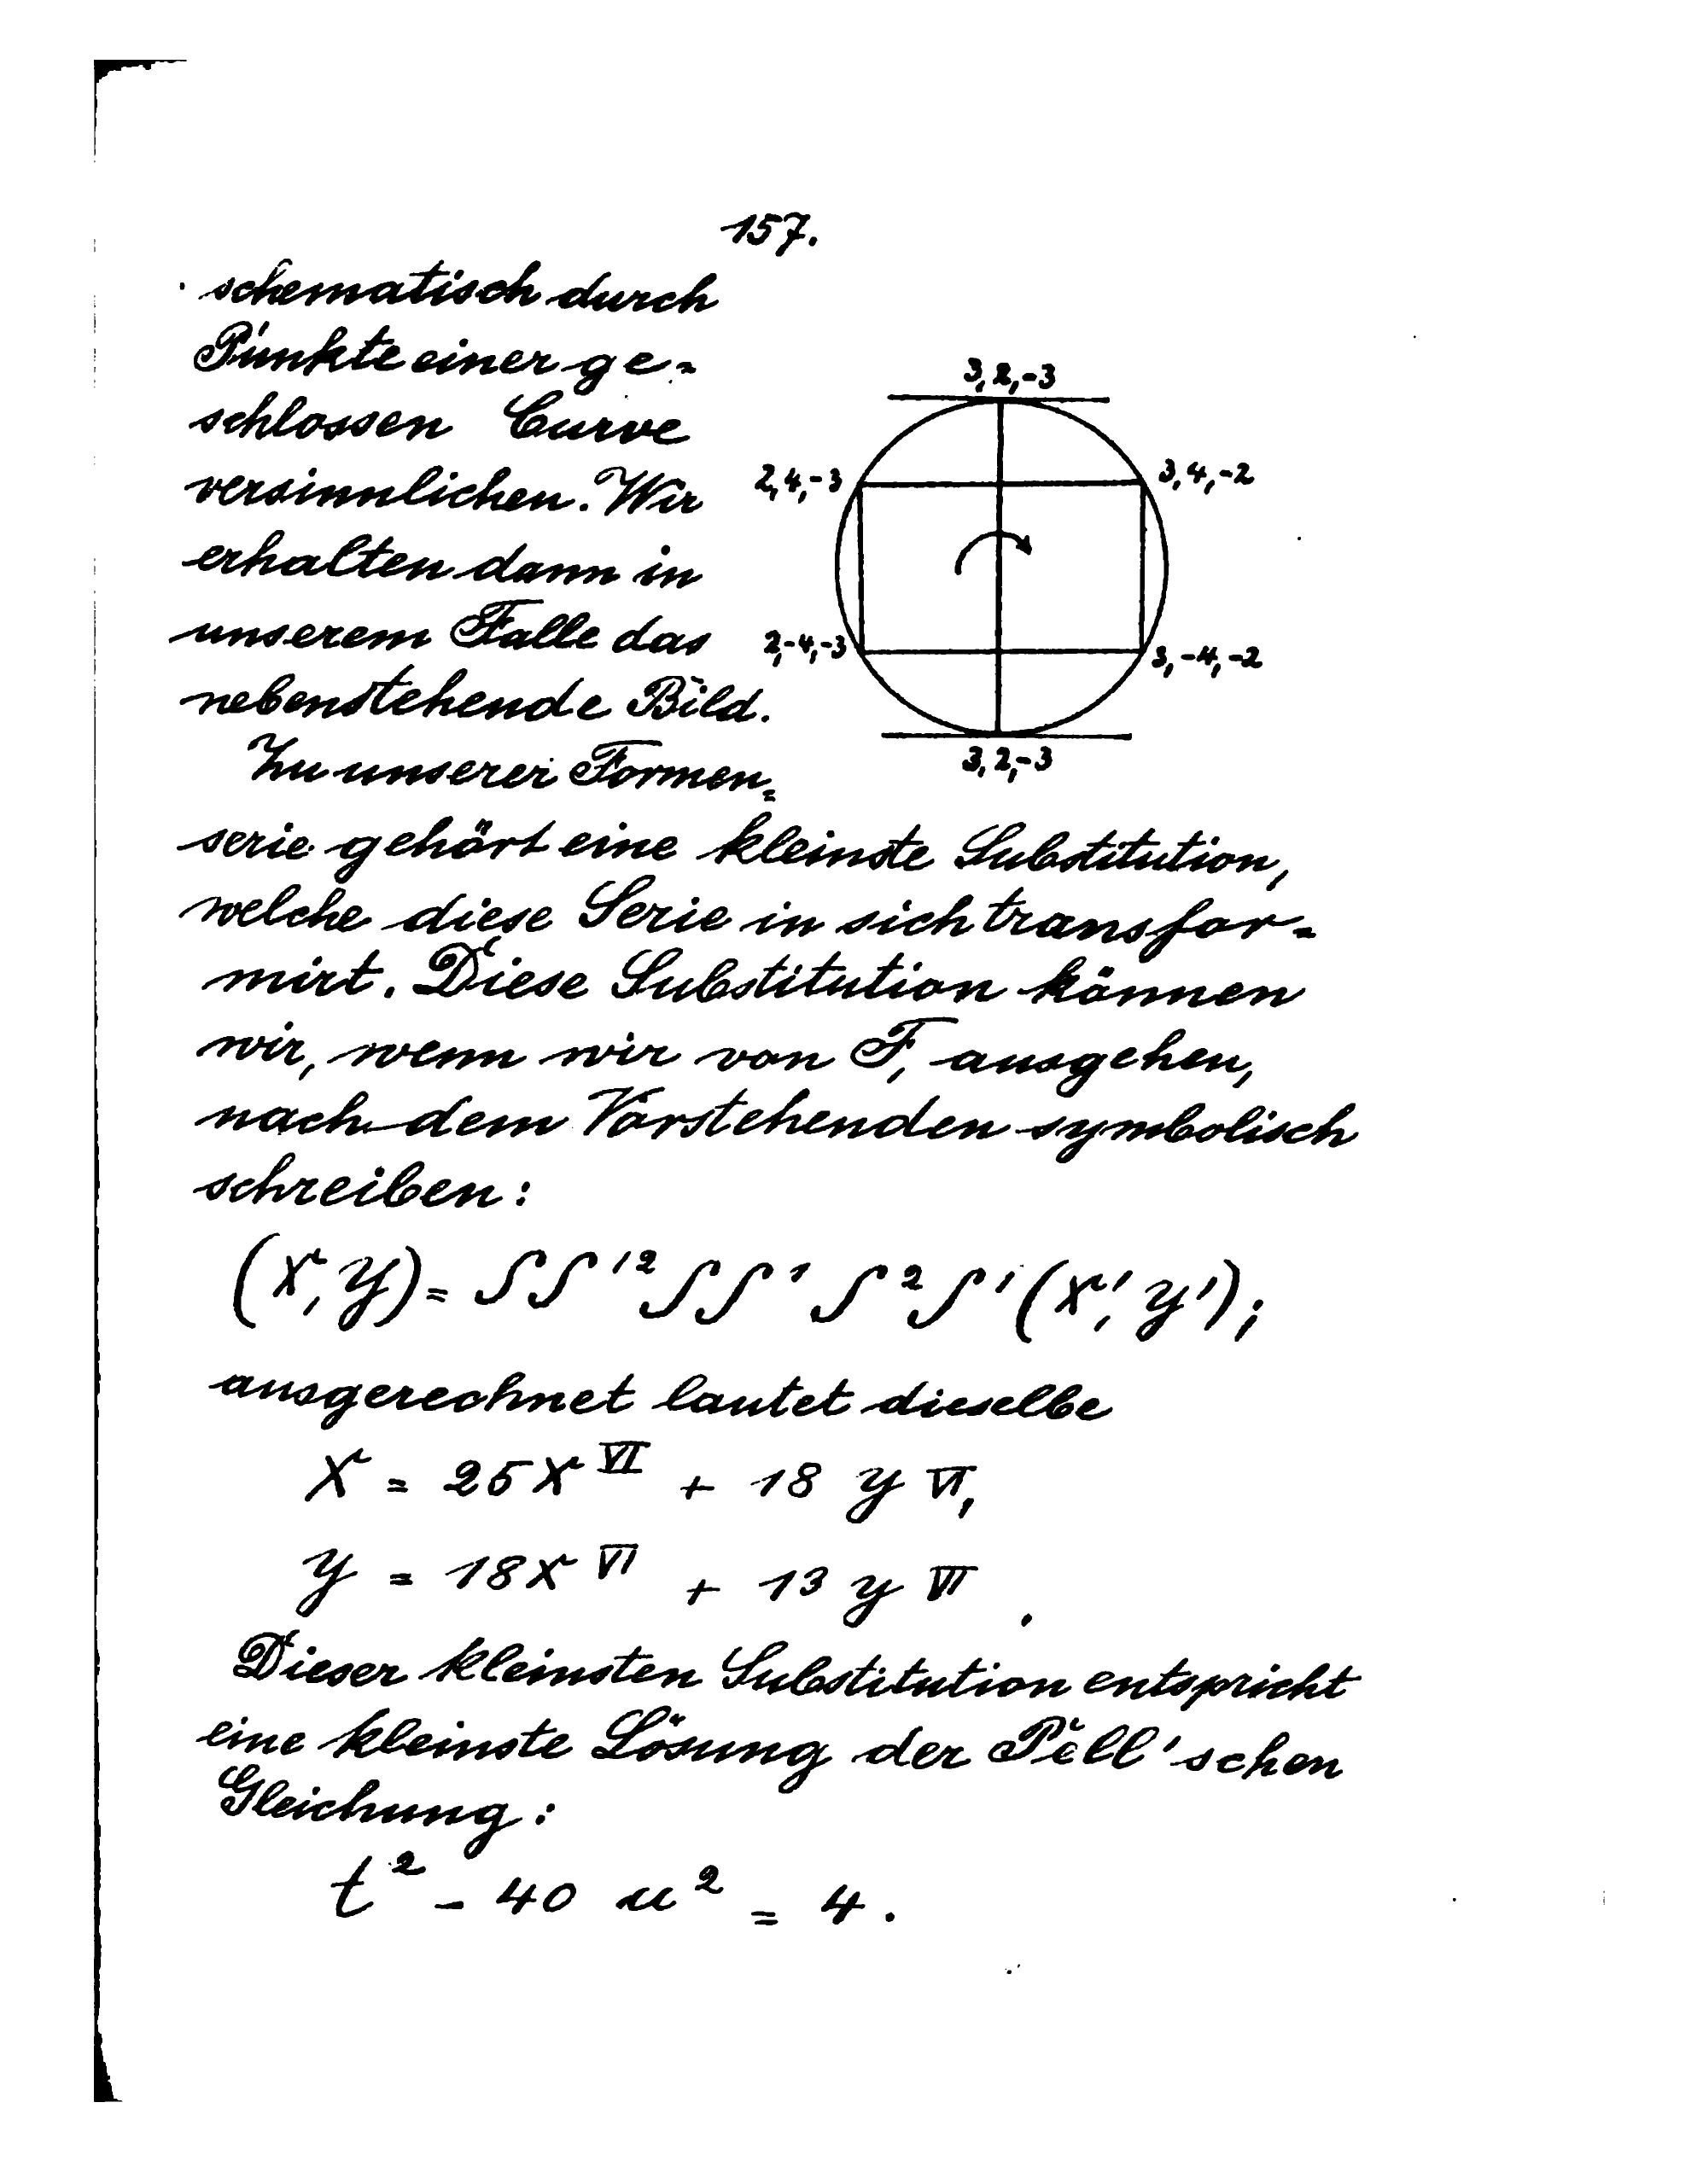 157.
schematisch durch
Punkte einer ge-
schlossen Curve
versinnlichen. Wir
erhalten dann in
unserem Falle das
nebenstehende Bild.
3, 2, -3
2, 4, -3
3, 4, -2
2, -4, -3
3, -4, -2
3, 2, -3
Zu unserer Formen-
serie gehört eine kleinste Substitution,
welche diese Serie in sich transfor-
mirt. Diese Substitution können
wir, wenn wir von F, ausgehen,
nach dem Vorstehenden symbolisch
schreiben:
(x, y) = S S'² S S' S² S' (x', y');
ausgerechnet lautet dieselbe
x = 25 x^VI + 18 y^VI,
y = 18 x^VI + 13 y^VI.
Dieser kleinsten Substitution entspricht
eine kleinste Lösung der Pell'schen
Gleichung:
t² - 40 u² = 4.